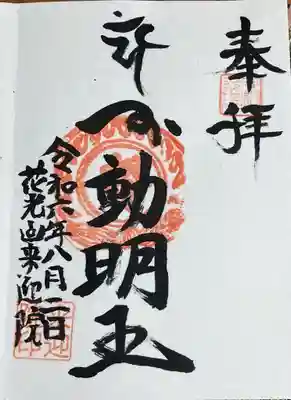 奉拝
不動明王
令和六年八月二日
花光山来迎院